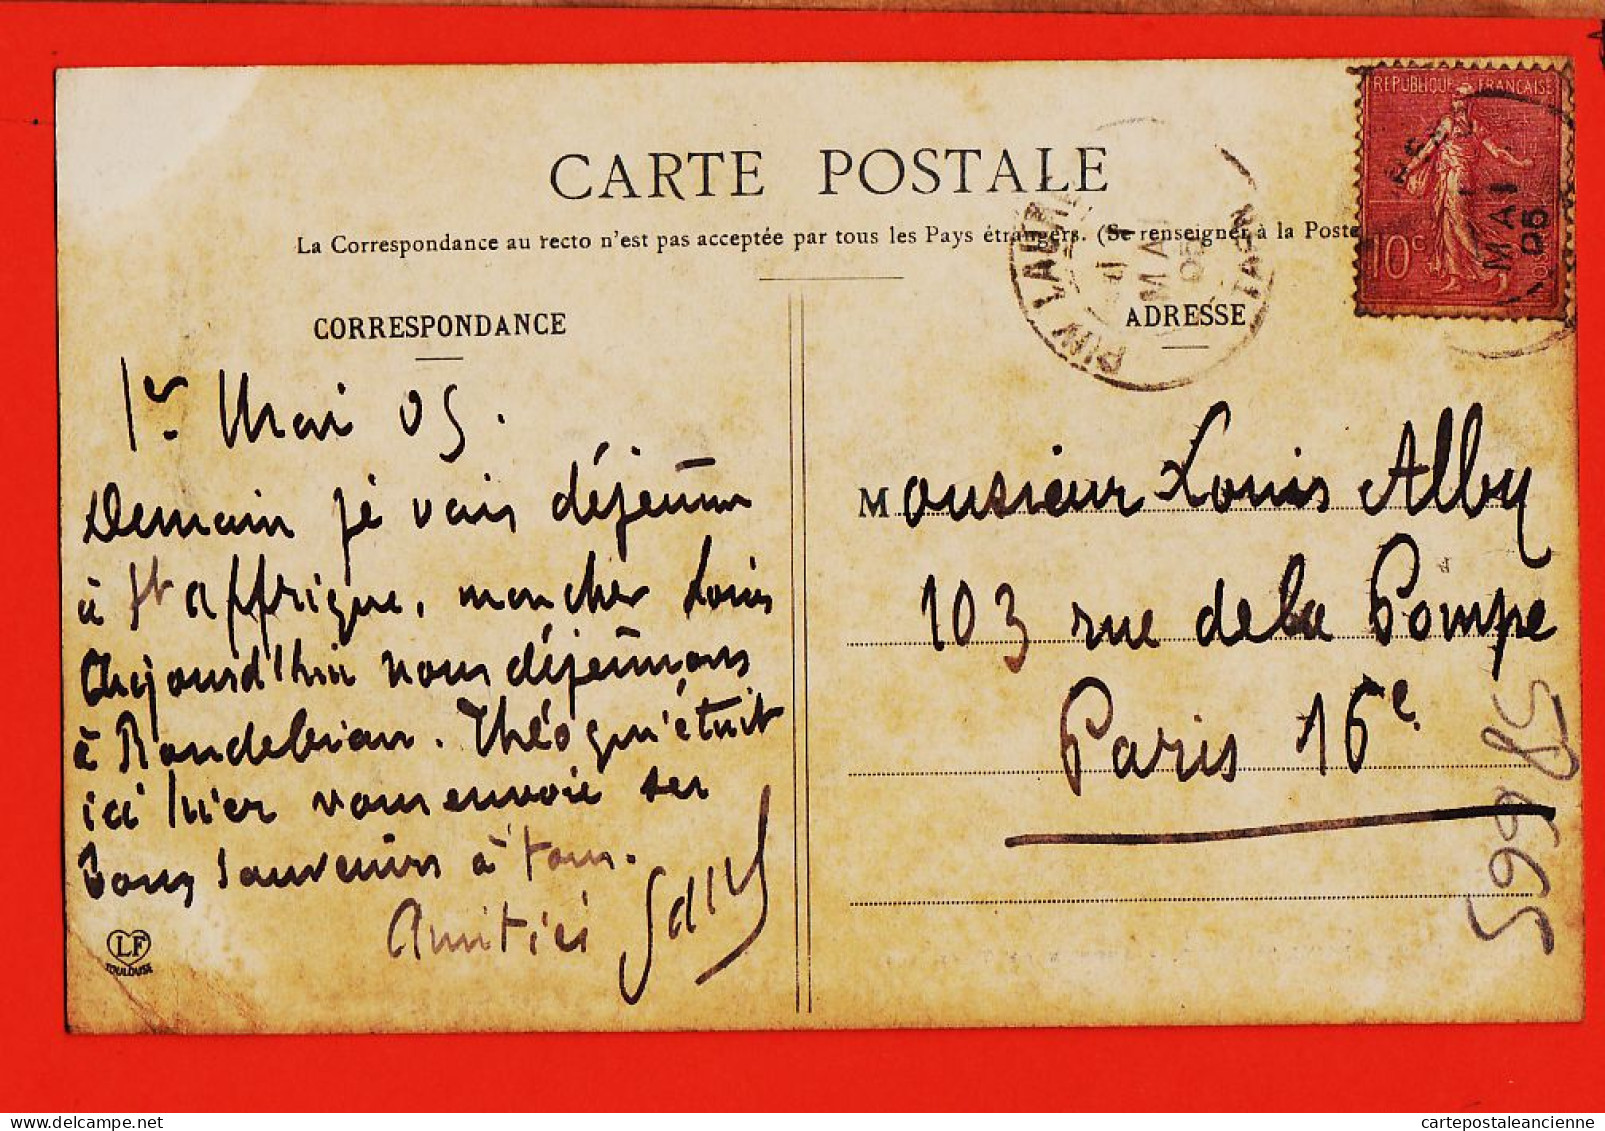 CARTE POSTALE
La Correspondance au recto n'est pas acceptée par tous les Pays étrangers. (Se renseigner à la Poste
CORRESPONDANCE
1er Mai 05.
Demain je vais déjeuner
à St Affrique, mon cher Louis
Aujourd'hui nous déjeunons
à Rondebian. Théo qui était
ici hier vous envoie ses
bons souvenirs à tous.
Amitiés
LF
TOULOUSE
ADRESSE
Monsieur Louis Alby
103 rue de la Pompe
Paris 16e
59865
REPUBLIQUE FRANÇAISE
10c
1
MAI
05
MAI
TARN
cartepostaleancienne